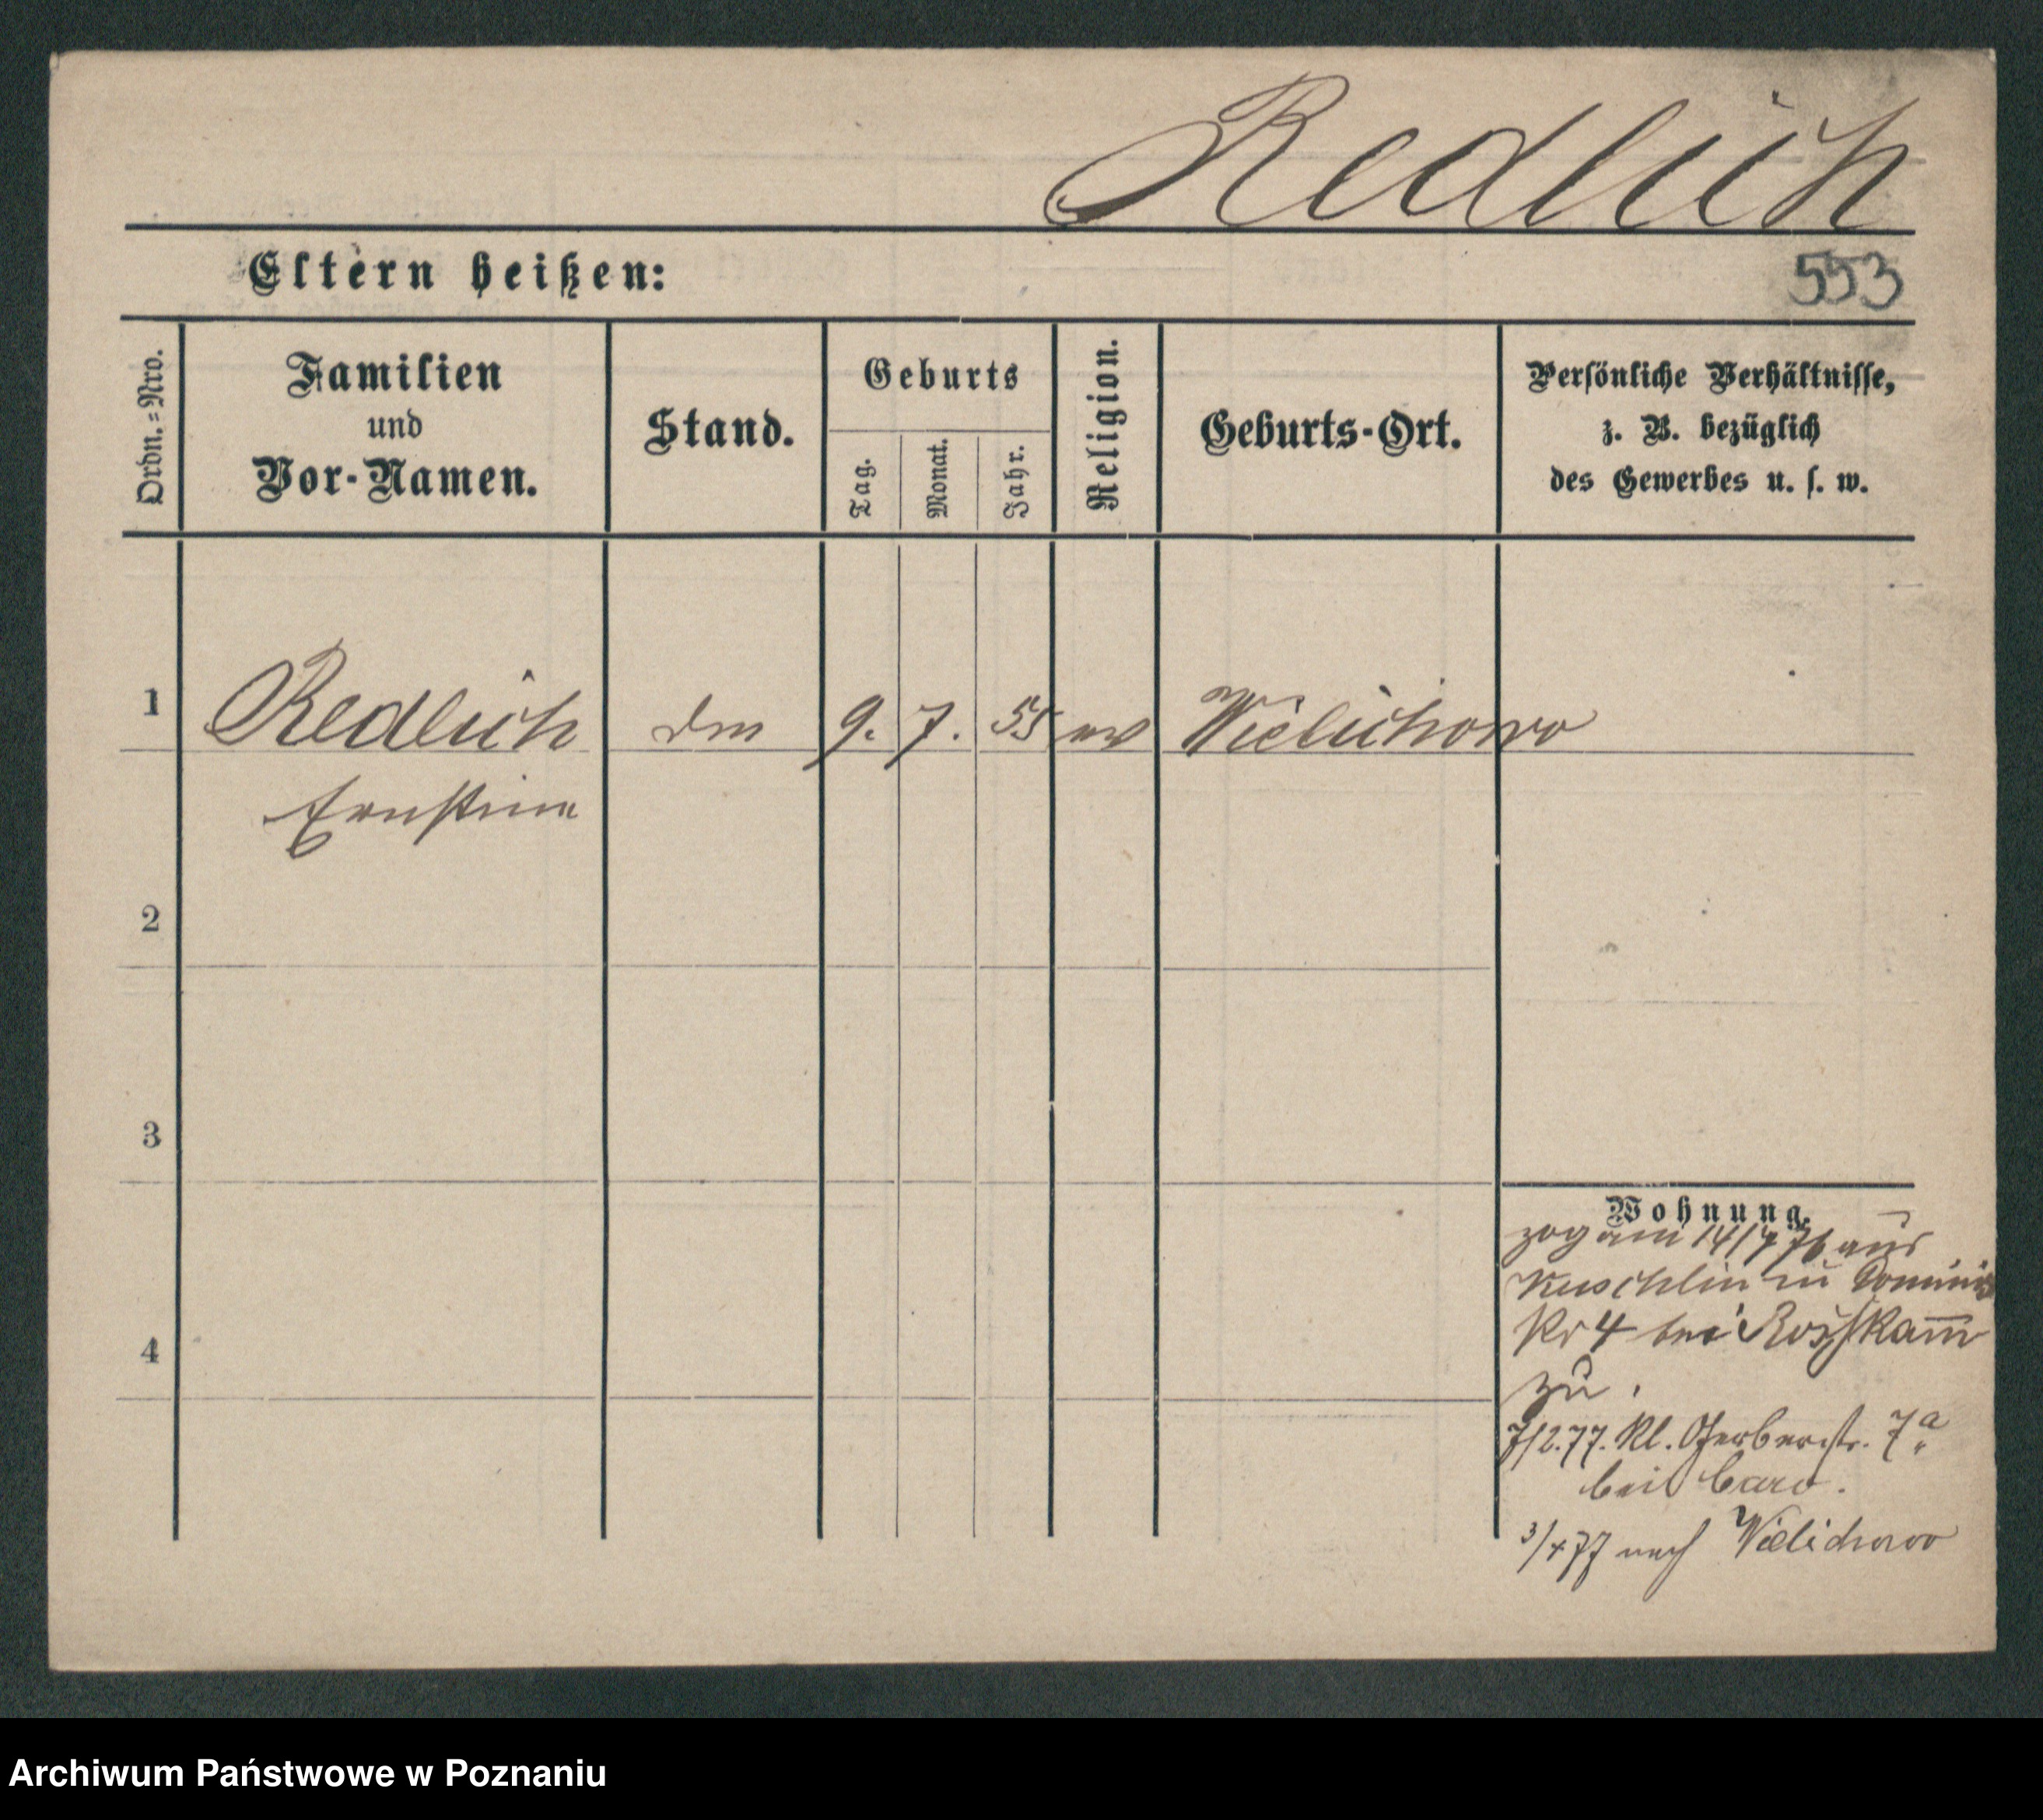 Redlich
Eltern heißen:
553
Ordn.=Nro.
Familien
und
Vor-Namen.
Stand.
Geburts
Tag.
Monat.
Jahr.
Religion.
Geburts-Ort.
Persönliche Verhältnisse,
z. B. bezüglich
des Gewerbes u. s. w.
1
Redlich 9. 7. 55 Wielichowo
Ernstine
2
3
4
Wohnung.
zog am 14/7 76 aus
Kuschlin
4 bei Rosskam̅
zu.
7/2.77. Kl. Gerberstr. 7a
bei Caro.
3/4 77 nach Wielichowo
Archiwum Państwowe w Poznaniu